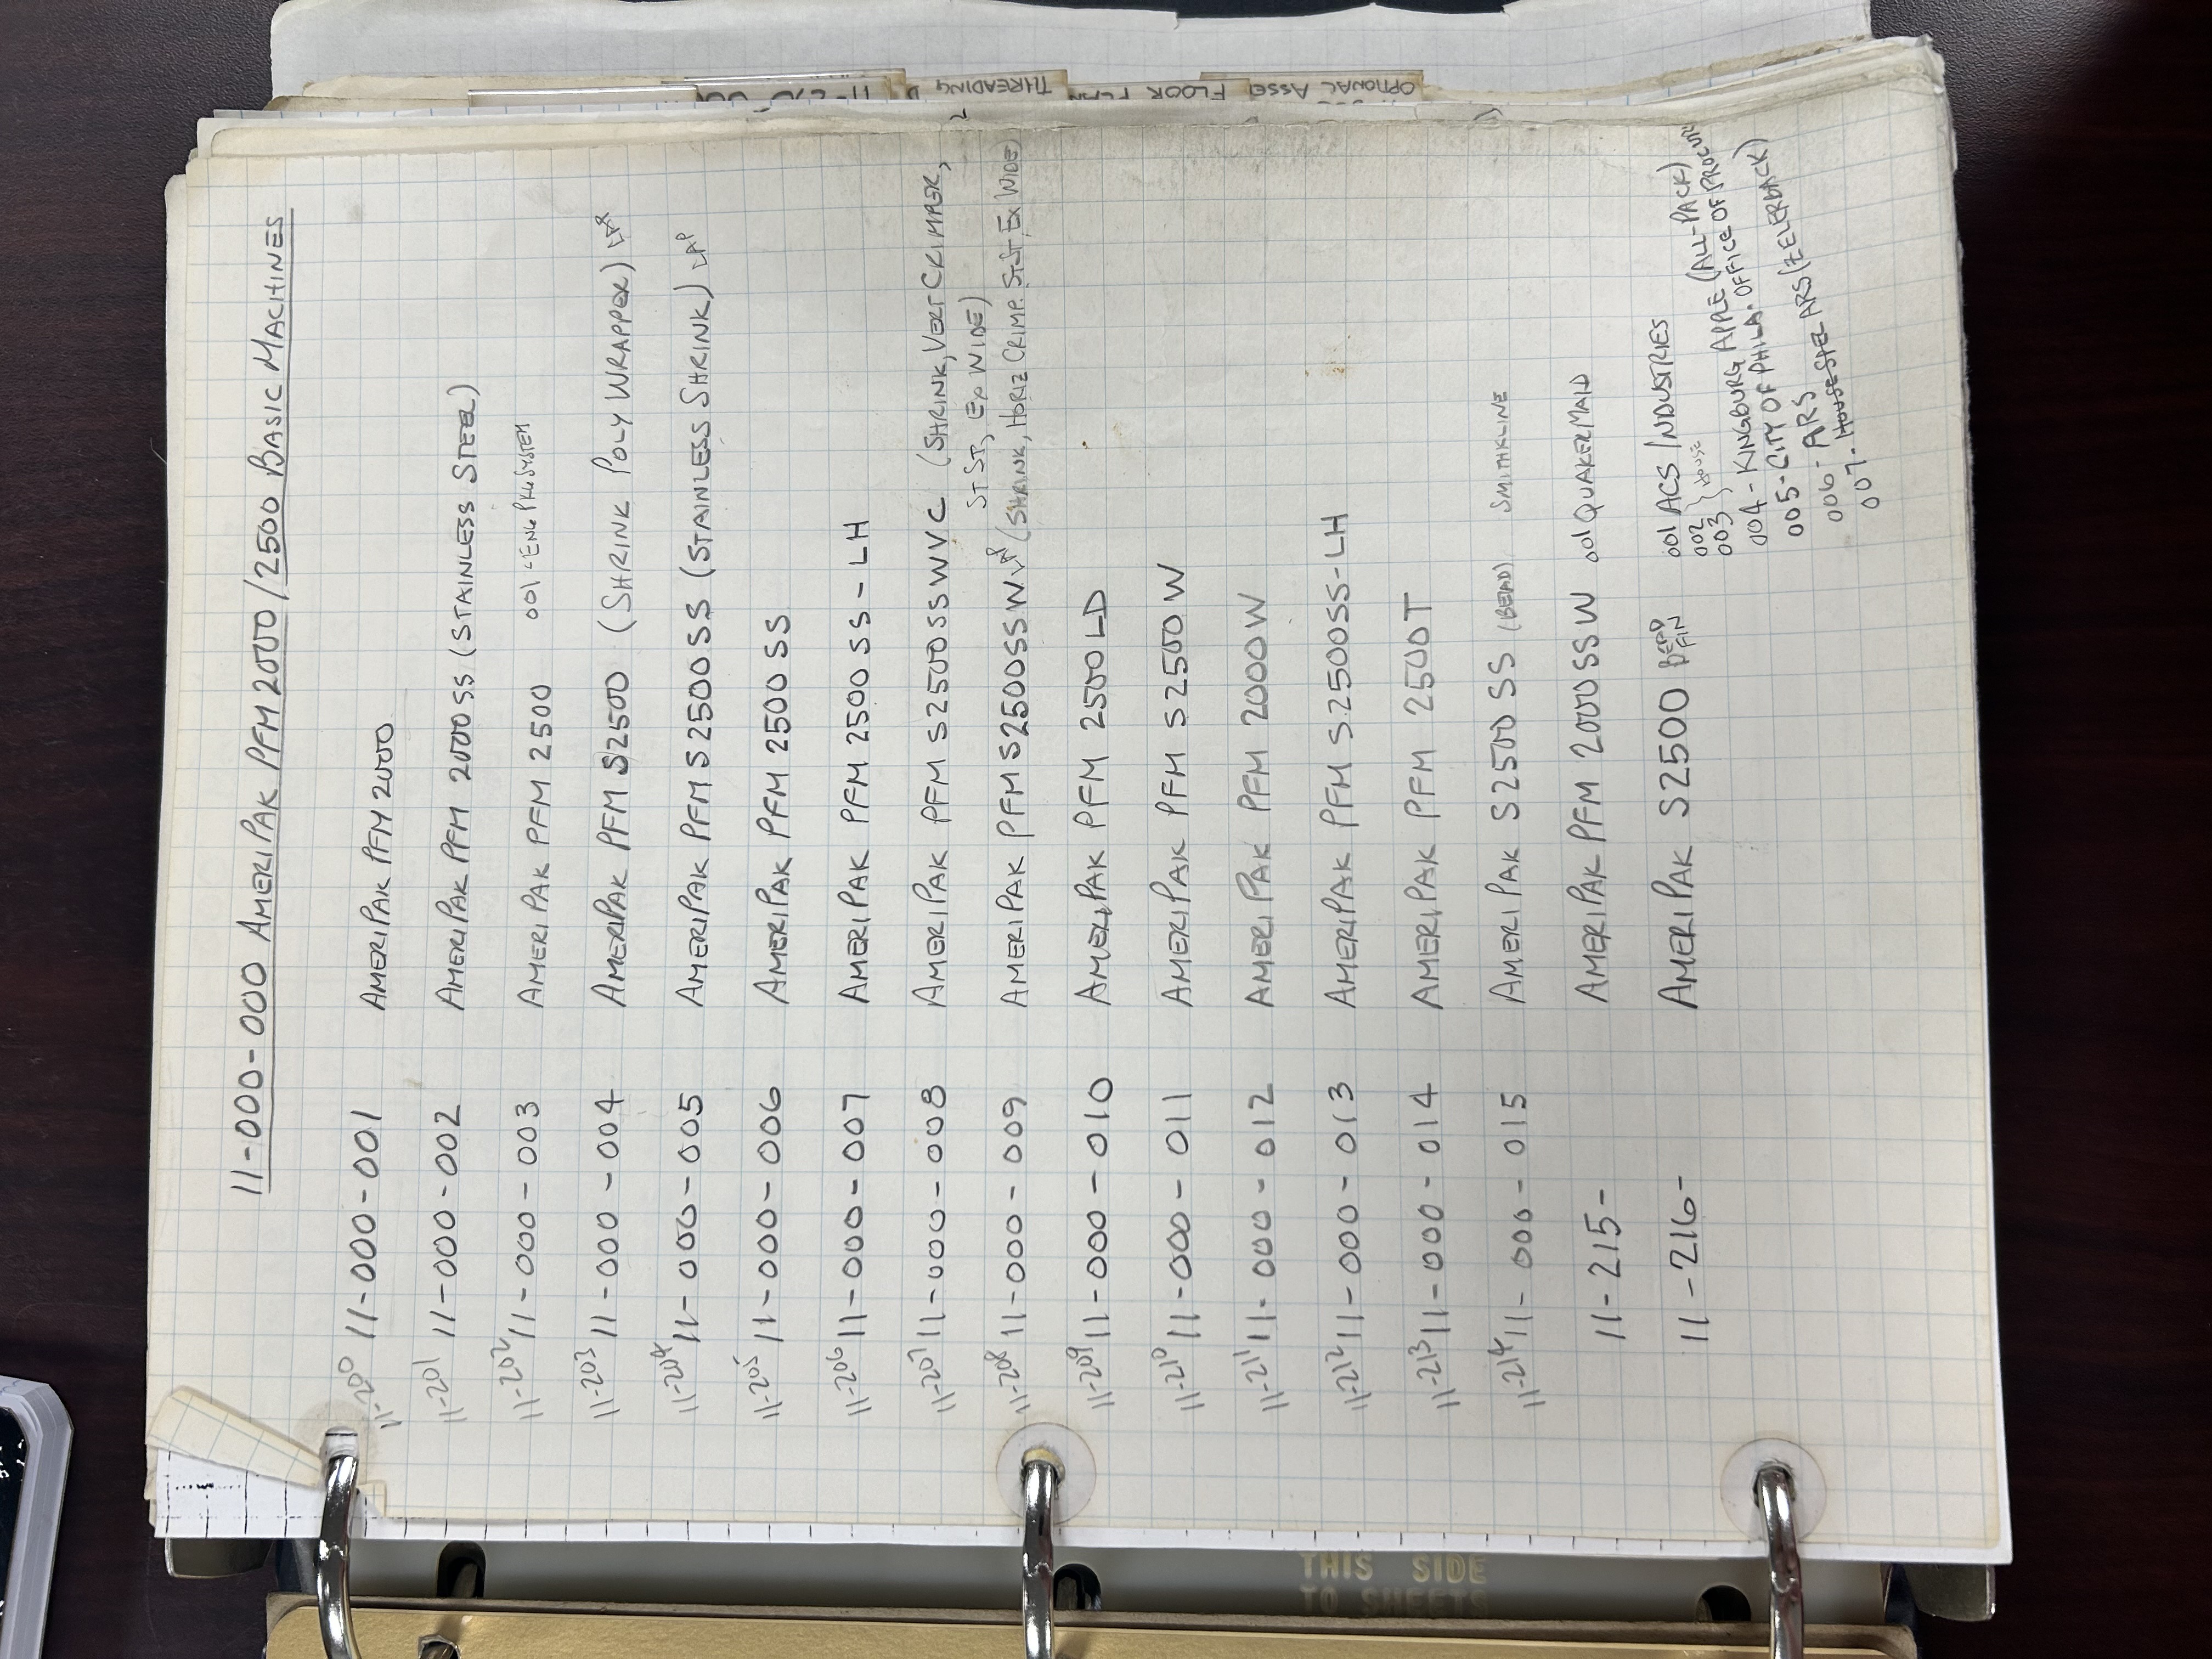 11-000-000 AMERIPAK PFM 2000/2500 BASIC MACHINES
11-200 11-000-001 AMERIPAK PFM 2000
11-201 11-000-002 AMERIPAK PFM 2000SS (STAINLESS STEEL)
11-202 11-000-003 AMERIPAK PFM 2500 001 - ENG PKG SYSTEM
11-203 11-000-004 AMERIPAK PFM S2500 (SHRINK POLY WRAPPER) LAP
11-204 11-000-005 AMERIPAK PFM S2500SS (STAINLESS SHRINK) LAP
11-205 11-000-006 AMERIPAK PFM 2500 SS
11-206 11-000-007 AMERIPAK PFM 2500 SS - LH
11-207 11-000-008 AMERIPAK PFM S2500SSWVC (SHRINK, VERT CRIMPER,
ST ST, EX WIDE)
11-208 11-000-009 AMERIPAK PFM S2500SSW LAP (SHRINK, HORIZ CRIMP. ST ST, EX WIDE)
11-209 11-000-010 AMERIPAK PFM 2500LD
11-210 11-000-011 AMERIPAK PFM S2500W
11-211 11-000-012 AMERIPAK PFM 2000W
11-212 11-000-013 AMERIPAK PFM S2500SS-LH
11-213 11-000-014 AMERIPAK PFM 2500T
11-214 11-000-015 AMERIPAK S2500 SS (BEAD) SMITHKLINE
11-215- AMERIPAK PFM 2000SSW 001 QUAKERMAID
11-216- AMERIPAK S2500 BEAD FIN 001 ACS INDUSTRIES
002
003 } HOUSE
004 - KINGBURG APPLE (ALL-PACK)
005 - CITY OF PHILA. OFFICE OF PROCUR
006 - ARS
007 - HOUSE SPEC ARS (ZELERBACK)
THIS SIDE
TO SHEETS
THREADING D
OPTIONAL ASSEM FLOOR PLAN